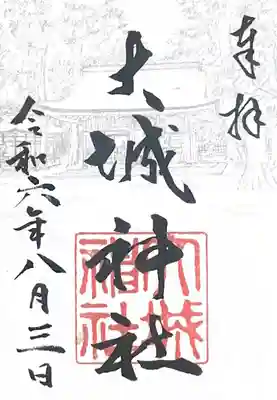 奉拝
大城神社
大城
神社
令和六年八月三日